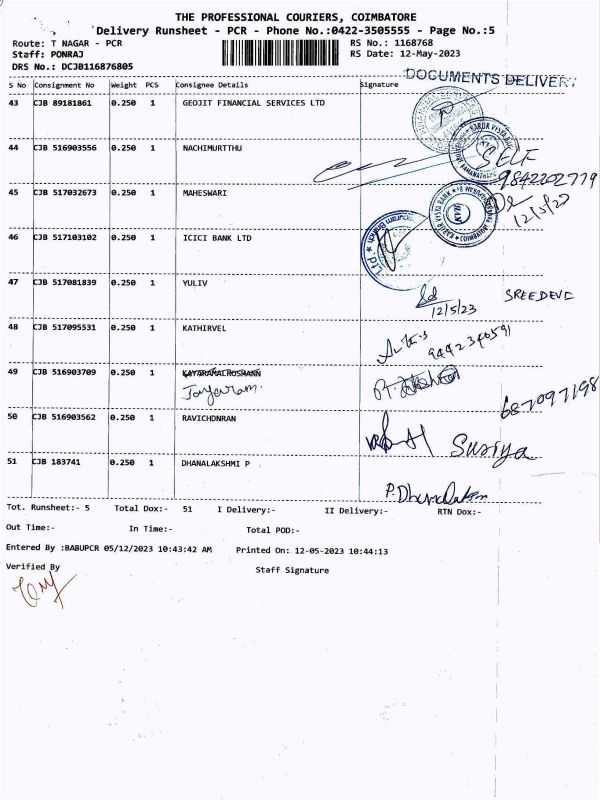 THE PROFESSIONAL COURIERS, COIMBATORE
Delivery Runsheet - PCR - Phone No.:0422-3505555 - Page No.:5
Route: T NAGAR - PCR RS No.: 1168768
Staff: PONRAJ RS Date: 12-May-2023
DRS No.: DCJB116876805
DOCUMENTS DELIVER
S No Consignment No Weight PCS Consignee Details Signature
43 CJB 89181861 0.250 1 GEOJIT FINANCIAL SERVICES LTD
44 CJB 516903556 0.250 1 NACHIMURTTHU
SELF
9842202779
45 CJB 517032673 0.250 1 MAHESWARI
12/5/23
46 CJB 517103102 0.250 1 ICICI BANK LTD
47 CJB 517081839 0.250 1 YULIV
12/5/23 SREEDEVI
48 CJB 517095531 0.250 1 KATHIRVEL
9442340591
49 CJB 516903709 0.250 1
Jayaram.
687097198
50 CJB 516903562 0.250 1 RAVICHDNRAN
Suriya
51 CJB 183741 0.250 1 DHANALAKSHMI P
Tot. Runsheet:- 5 Total Dox:- 51 I Delivery:- II Delivery:- RTN Dox:-
Out Time:- In Time:- Total POD:-
Entered By :BABUPCR 05/12/2023 10:43:42 AM Printed On: 12-05-2023 10:44:13
Verified By Staff Signature